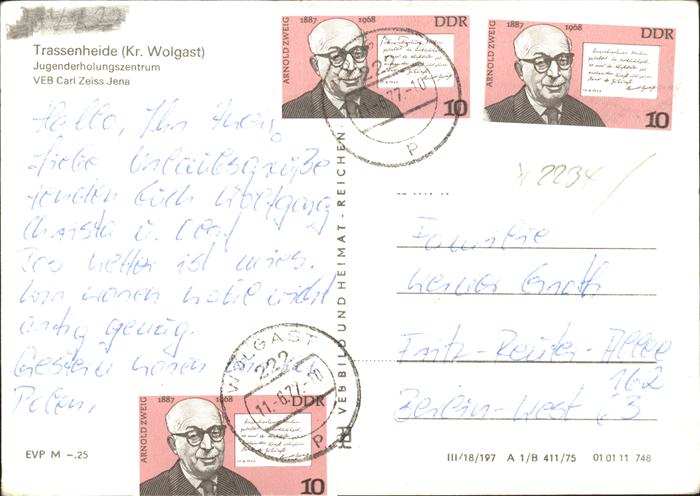 Trassenheide (Kr. Wolgast)
Jugenderholungszentrum
VEB Carl Zeiss Jena
Hallo, Ihr
Liebe Urlaubsgrüße
senden Euch Wolfgang
Christa u.
Das Wetter ist mies.
Wir waren wohl nicht
artig genug.
Gestern waren
Polen.
EVP M –.25
VEB BILD UND HEIMAT · REICHENB
ARNOLD ZWEIG 1887 1968 DDR 10
ARNOLD ZWEIG 1887 1968 DDR 10
222
11.-6.77.-10
P
* 2234
Familie
Werner
Fritz-Reuter-Allee
162
Berlin-West 63
WOLGAST
222
11.-6.77.-10
P
ARNOLD ZWEIG 1887 1968 DDR 10
III/18/197 A 1/B 411/75 01 01 11 748